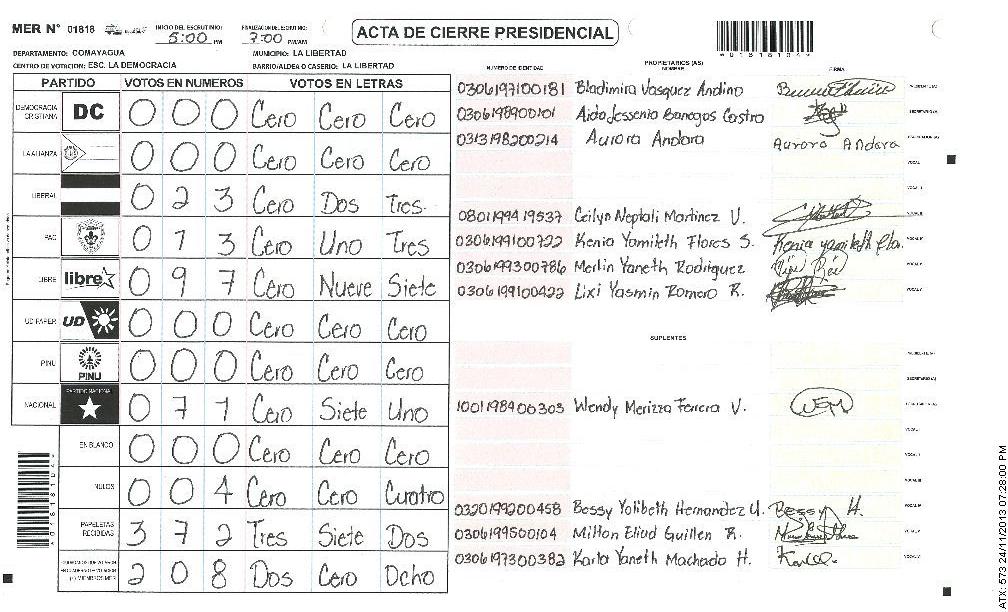 MER N° 01818 INICIO DEL ESCRUTINIO: 5:00 PM FINALIZACION DEL ESCRUTINIO: 7:00 PM/AM
ACTA DE CIERRE PRESIDENCIAL
DEPARTAMENTO: COMAYAGUA MUNICIPIO: LA LIBERTAD
CENTRO DE VOTACION: ESC. LA DEMOCRACIA BARRIO/ALDEA O CASERIO: LA LIBERTAD
PARTIDO VOTOS EN NUMEROS VOTOS EN LETRAS
DEMOCRACIA CRISTIANA DC 0 0 0 Cero Cero Cero
LA ALIANZA 0 0 0 Cero Cero Cero
LIBERAL 0 2 3 Cero Dos Tres
PAC 0 1 3 Cero Uno Tres
LIBRE libre 0 9 7 Cero Nueve Siete
UD PAPER UD 0 0 0 Cero Cero Cero
PINU PINU 0 0 0 Cero Cero Cero
NACIONAL PARTIDO NACIONAL 0 7 1 Cero Siete Uno
EN BLANCO 0 0 0 Cero Cero Cero
NULOS 0 0 4 Cero Cero Cuatro
PAPELETAS RECIBIDAS 3 7 2 Tres Siete Dos
2 0 8 Dos Cero Ocho
NUMERO DE IDENTIDAD PROPIETARIOS (AS) NOMBRE FIRMA
0306197100181 Bladimira Vasquez Andino
0306198900101 Aida Jessenia Banegas Castro
0313198200214 Aurora Andara Aurora Andara
0801199419537 Ceilyn Neptali Martinez V.
0306199100722 Kenia Yamileth Flores S. Kenia yamileth Flo.
0306199300786 Merlin Yaneth Rodriguez
0306199100422 Lixi Yasmin Romero R.
SUPLENTES
1001198400303 Wendy Merizza Ferrera V. WFM
0320199200458 Bessy Yolibeth Hernandez U. Bessy H.
0306199500104 Milton Eliud Guillen R.
0306197300382 Karla Yaneth Machado H. Karla.
ATX: 573 24/11/2013 07:28:00 PM